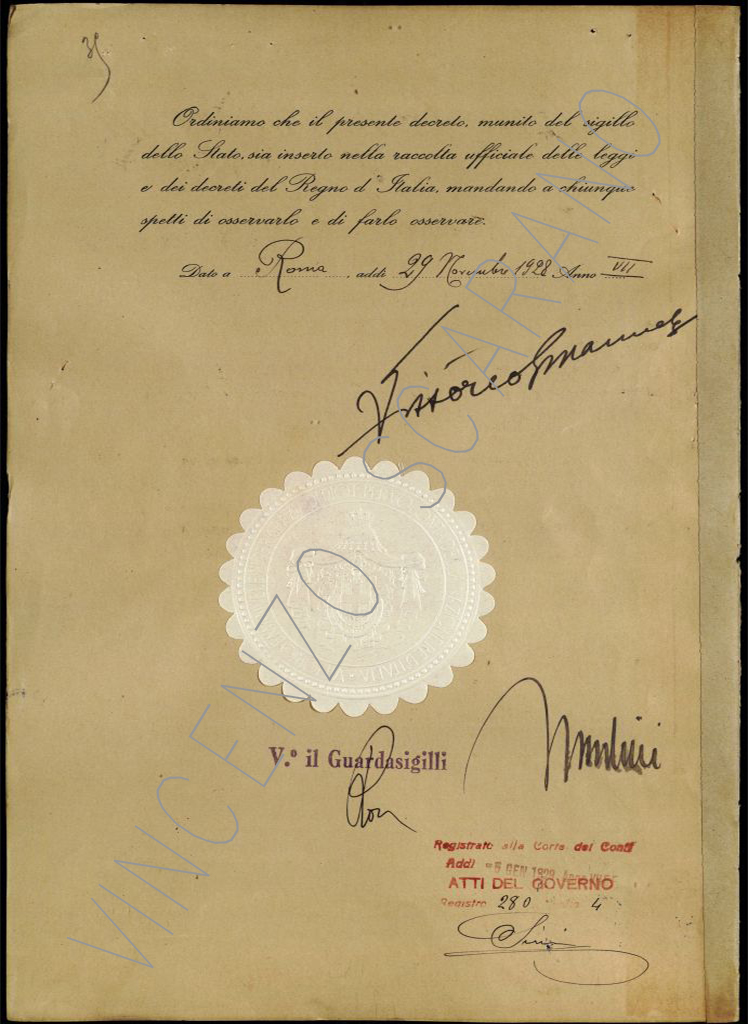 35
Ordiniamo che il presente decreto, munito del sigillo
dello Stato, sia inserto nella raccolta ufficiale delle leggi
e dei decreti del Regno d'Italia, mandando a chiunque
spetti di osservarlo e di farlo osservare.
Dato a Roma, addì 29 Novembre 1928 Anno VII
Vittorio Emanuele
Mussolini
V.º il Guardasigilli
Rocco
Registrato alla Corte dei Conti
Addì -5 GEN
ATTI DEL GOVERNO
Registro 280 4
VINCENZO SCARANO